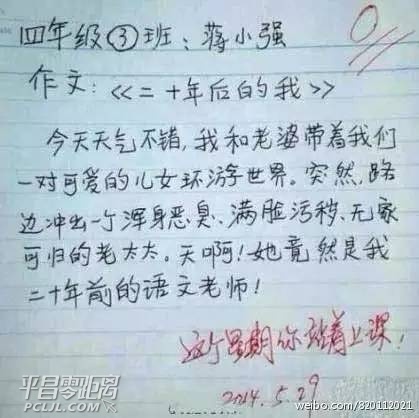 四年级③班：蒋小强
0
作文：《二十年后的我》
今天天气不错，我和老婆带着我们
一对可爱的儿女环游世界。突然，路
边冲出一个浑身恶臭、满脸污秽、无家
可归的老太太。天啊！她竟然是我
二十年前的语文老师！
这个星期你站着上课！
2014.5.29
平昌零距离
PCLJL.COM
weibo.com/820112021